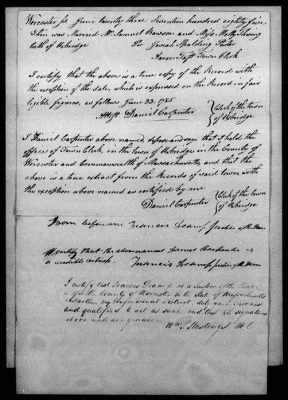 Worcester ss June twenty three Seventeen hundred eighty five
then was married Mr Samuel Rawson and Miss
both of Uxbridge
Pr Josiah Spalding Pastor
Town Clerk
I certify that the above is a true copy of the Records with
the exception of the date, which is expressed on the Record in far
ligible figures, as follows June 23. 1785
Attest Daniel Carpenter
Clerk of the town
of Uxbridge
I Daniel Carpenter above named depose and say that I hold the
office of Town Clerk, in the town of Uxbridge in the County of
Worcester and Commonwealth of Massachusetts, and that the
above is a true extract from the Records of said town with
the exception above named as certified by me
Daniel Carpenter
Clerk of the town
of Uxbridge
Sworn before me Francis Deane Justice of the Peace
I certify that the abovenamed Daniel Carpenter is
a credible witness. Francis Deane Justice of the Peace
I certify that Francis Deane is a Justice of the Peace
for the County of Worcester & State of Massachusetts
and qualified to act as such and that his signatures
above are genuine
Wm S Hastings M.C.